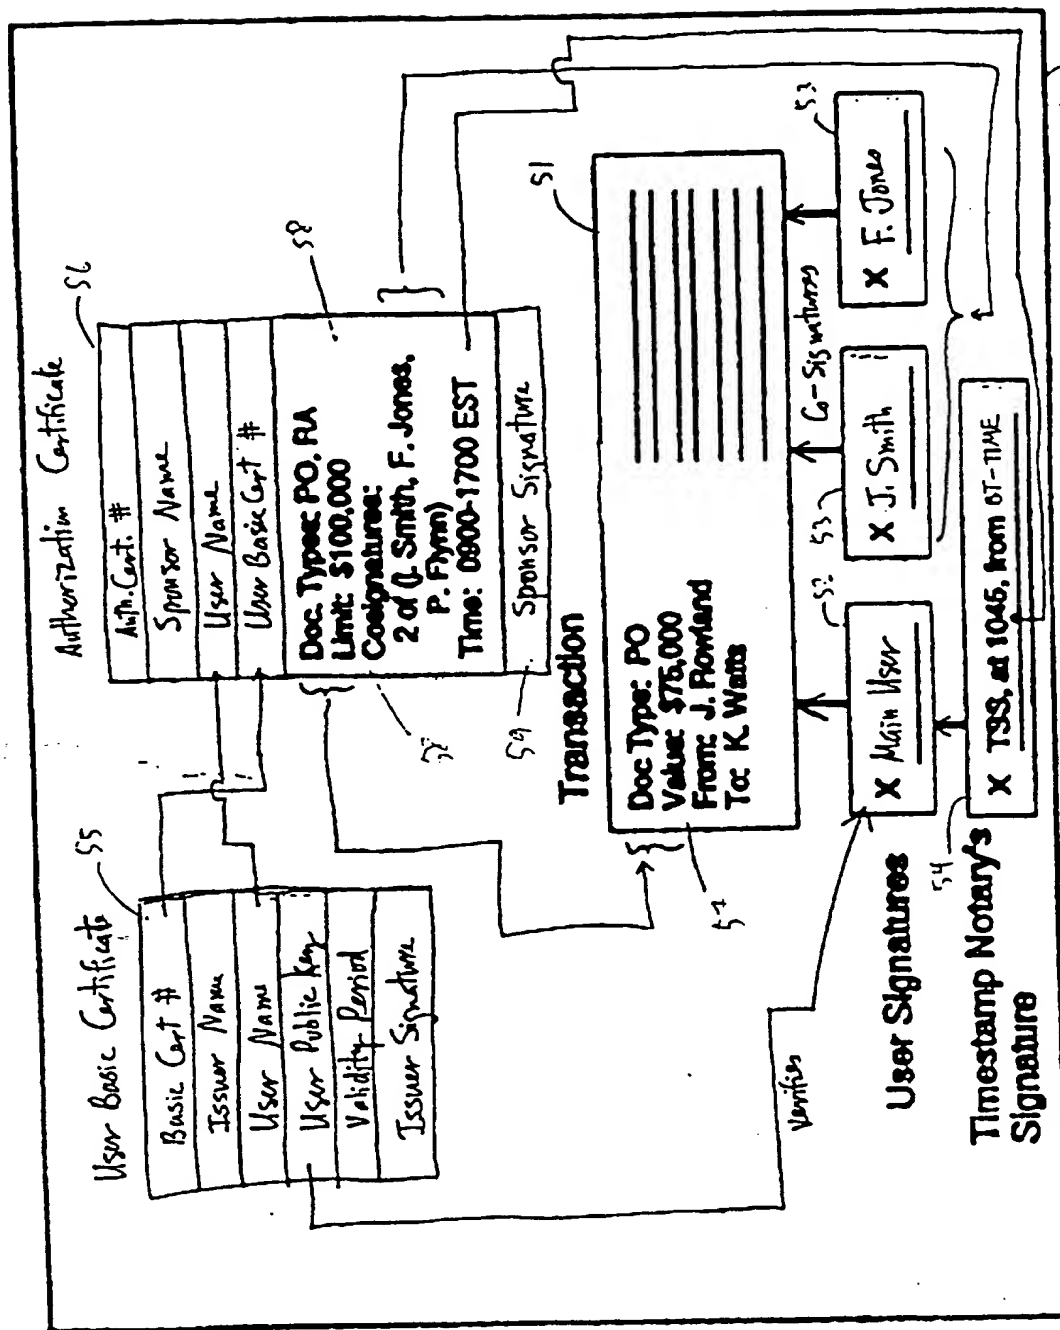 User Basic Certificate
55
Basic Cert #
Issuer Name
User Name
User Public Key
Validity Period
Issuer Signature
Authorization Certificate
56
Auth. Cert. #
Sponsor Name
User Name
User Basic Cert #
Doc. Types: PO, RA
Limit: $100,000
Cosignatures:
2 of (J. Smith, F. Jones,
P. Flynn)
Time: 0900-1700 EST
Sponsor Signature
58
58
59
Transaction
51
Doc Type: PO
Value: $75,000
From: J. Rowland
To: K. Watts
57
verifies
User Signatures
52
X Main User
Co-Signatures
53
X J. Smith
53
X F. Jones
Timestamp Notary's
Signature
54
X TSS, at 1045, from DT-TIME